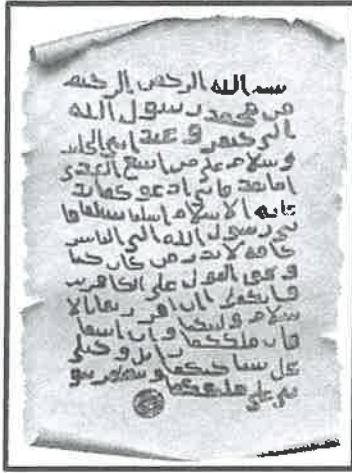 بسم الله الرحمن الرحيم
من محمد رسول الله
الى جيفر و عبد ابني الجلند
وسلام على من اتبع الهدى
اما بعد فاني ادعو كما بد
عايه الاسلام اسلما تسلما فا
ني رسول الله الى الناس
كافه لانذر من كان حيا
و يحق القول على الكافرين
فانكما ان اقررتما بالا
سلام وليتكما وان ابيتما
فان ملككما زايل و خيلي
تحل بساحتكما و تظهر نبو
تي على ملككما